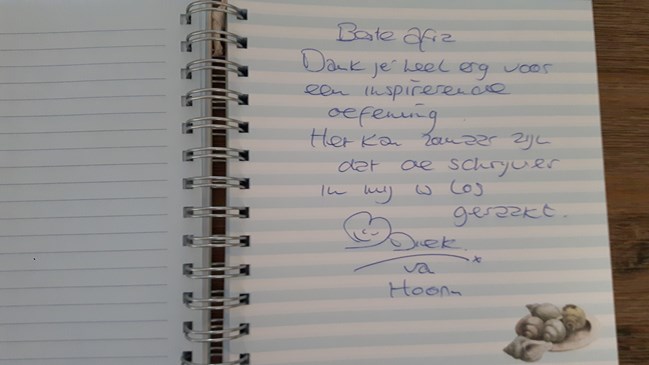 Beste
Dank je heel erg voor
een inspirerende
oefening
Het kan zomaar zijn
dat de schrijver
in mij is los
geraakt.
va
Hoorn